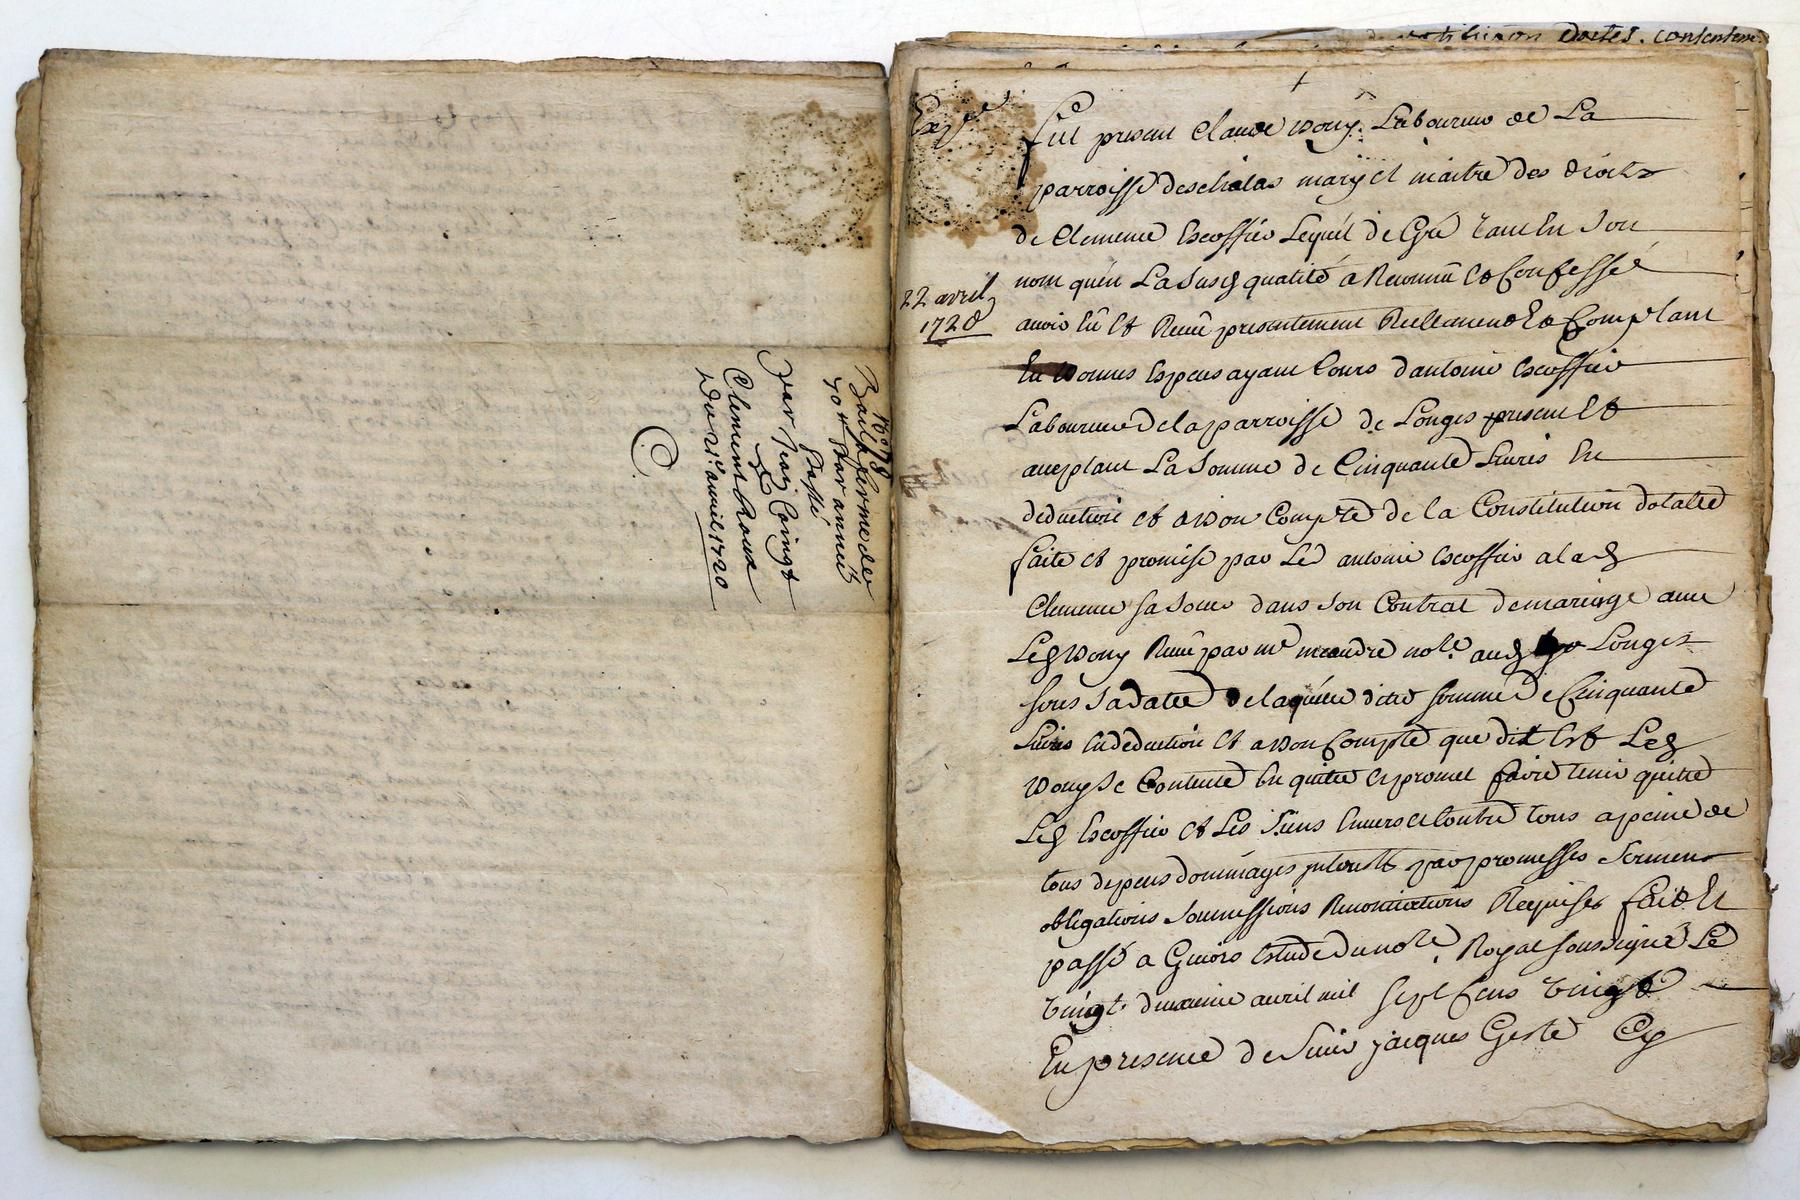 No 78
Bail a ferme de
40 tt par année
Passé
par Jean Coingt
à
Clement Roux
Du 21e avril 1720
constitution dotes. contenten
Expé
22 avril
1720
fut present Claude Bony Laboureur de La
parroisse deschalas mary et maitre des droits
de Clemence Escoffier Lequel de Gré tant En Son
nom quen La Susd qualité a Reconnu Et Confessé
avoir Eû Et Receu presentement Reellement Et Comptant
En Bonnes Especes ayant Cours dantoine Escoffier
Laboureur de la parroisse de Longes present Et
acceptant La Somme de Cinquante Livres En
deduction et a Bon Compte de la Constitution dotalle
faite et promise par Led antoine Escoffier a lad
Clemence sa Soeur dans Son Contrat de mariage avec
Led Bony Receu par me meandre nore aud Longes
sous Sa datte de laquelle ditte somme de Cinquante
Livres En deduction Et a Bon Compte que dit Est Led
Bony Se Contente En quitte et promet faire tenir quitte
Led Escoffier Et Les Siens Envers et Contre tous a peine de
tous depens dommages interests par promesses Serment
obligations Soumissions Renonciations Requises fait Et
passé a Givors Etude du nore Royal Soussigné Le
Vingt deuxieme avril mil sept Cens vingt
En presence de Sieur jacques Geste